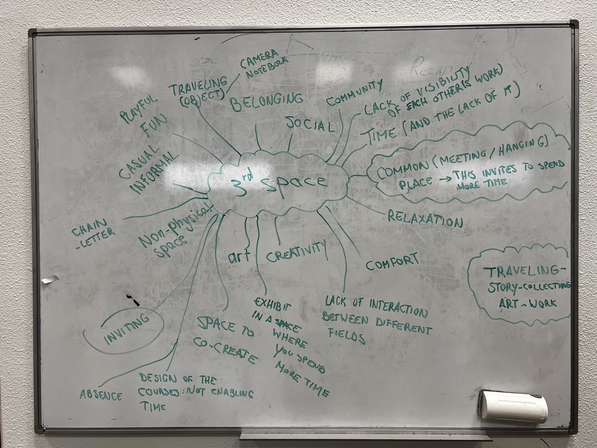 CAMERA
NOTEBOOK
TRAVELING
(OBJECT)
BELONGING
COMMUNITY
SOCIAL
LACK OF VISIBILITY
OF EACH OTHER'S WORK)
TIME (AND THE LACK OF IT)
PLAYFUL
FUN
CASUAL
INFORMAL
3rd space
COMMON (MEETING/HANGING)
PLACE → THIS INVITES TO SPEND
MORE TIME
RELAXATION
CHAIN
-LETTER
Non-physical
space
art
CREATIVITY
COMFORT
TRAVELING-
STORY-COLLECTING
ART-WORK
INVITING
SPACE TO
CO-CREATE
EXHIBIT
IN A SPACE
WHERE
YOU SPEND
MORE TIME
LACK OF INTERACTION
BETWEEN DIFFERENT
FIELDS
ABSENCE
DESIGN OF THE
COURSES: NOT ENABLING
TIME